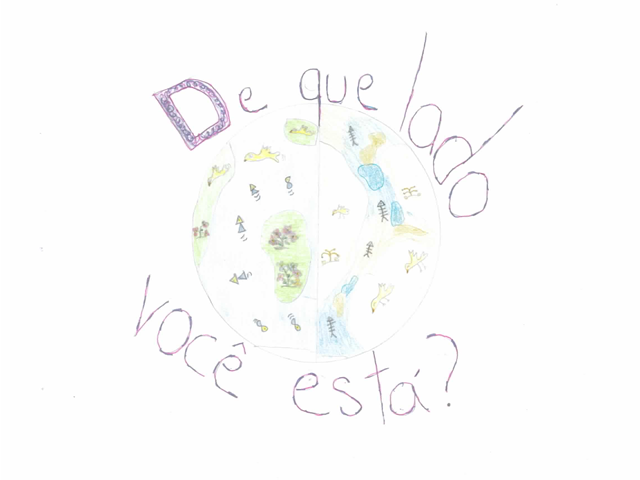 De que lado
você está?